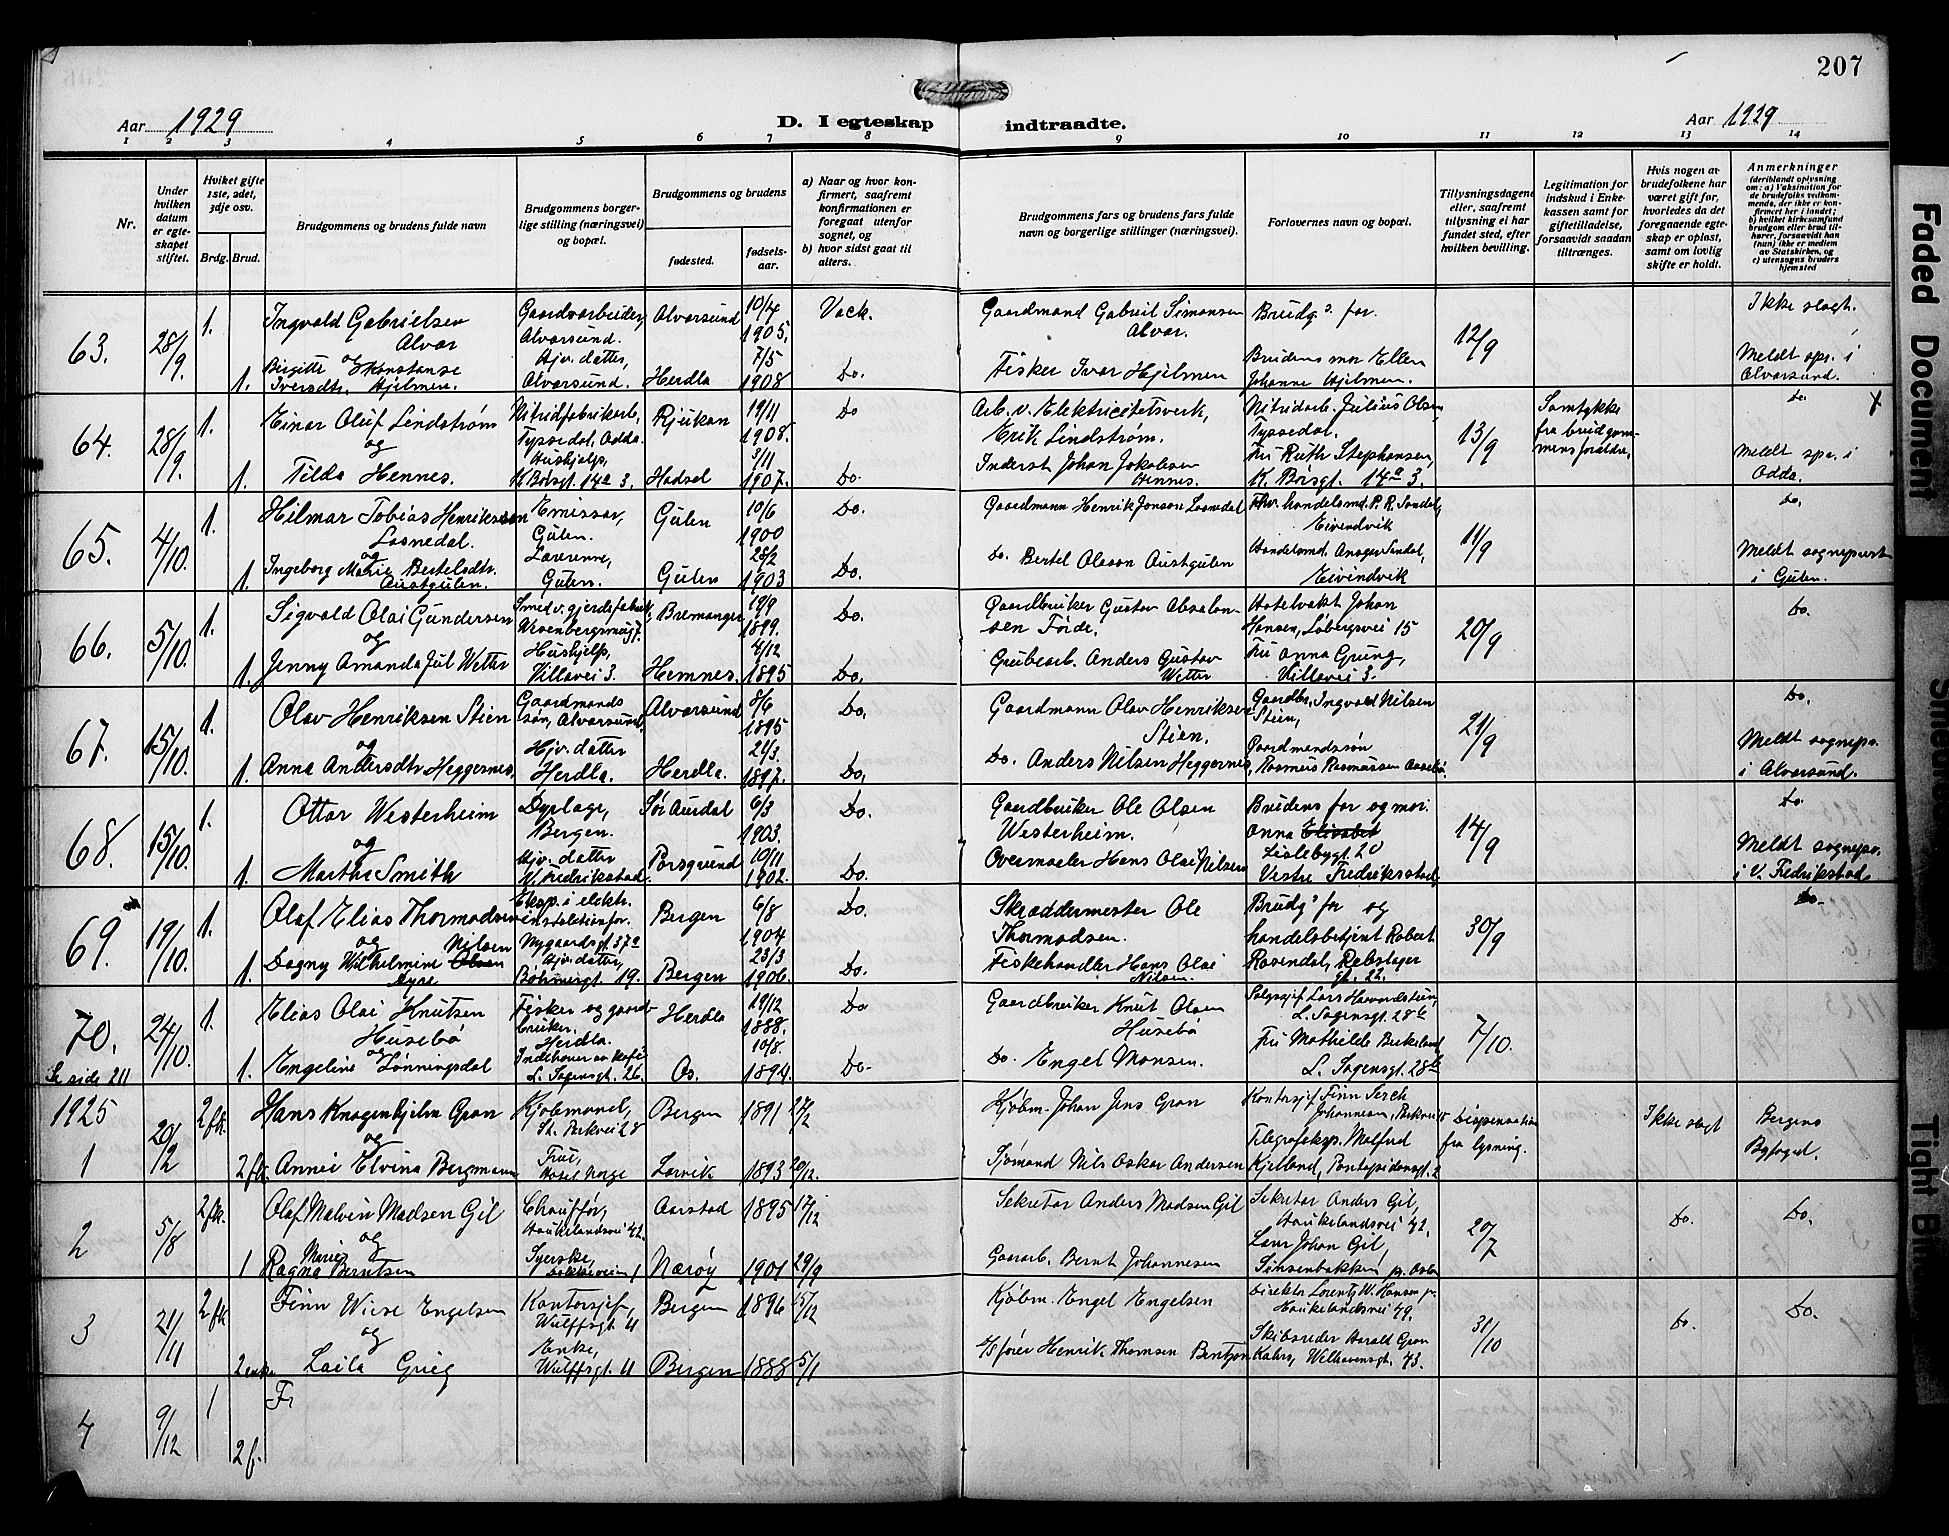 207
Aar 1929
D. I egteskap indtraadte.
Aar 1929
1 2 3 4 5 6 7 8 9 10 11 12 13 14
Nr.
Under hvilken datum er egteskapet stiftet.
Hviket gifte 1ste, 2det, 3dje osv.
Brdg. Brud.
Brudgommens og brudens fulde navn
Brudgommens borgerlige stilling (næringsvei) og bopæl.
Brudgommens og brudens
fødested.
fødselsaar.
a) Naar og hvor konfirmert, saafremt konfirmationen er foregaat utenfor sognet, og
b) hvor sidst gaat til alters.
Brudgommens fars og brudens fars fulde navn og borgerlige stillinger (næringsvei).
Forlovernes navn og bopæl.
Tillysningsdagene eller, saafremt tillysning ei har fundet sted, efter hvilken bevilling.
Legitimation for indskud i Enkekassen samt for giftetilladelse, forsaavidt saadan tiltrænges.
Hvis nogen av brudefolkene har været gift før, hvorledes da det foregaaende egteskap er opløst, samt om lovlig skifte er holdt.
Anmerkninger
(deriblandt oplysning om: a) Vaksination for de brudefolks vedkommende, der ikke er konfirmert her i landet; b) hvilket kirkesamfund brudgom eller brud tilhører, forsaavidt han (hun) ikke er medlem av Statskirken, og c) utensogns bruders hjemsted
63. 28/9. 1. Ingvald Gabrielsen Alvær Gaardarbeider, Alversund. Alversund 10/4 1905. Vack. Gaardmand Gabriel Simonsen Alvær. Brudg.s far. 12/9 Ikke slegt.
og
1. Birgitte Konstanse Iversdtr. Hjelmen. Hjv. datter, Alversund. Herdla 7/5 1908 Do. Fisker Ivar Hjelmen Brudens mor Ellen Johanne Hjelmen. Meldt spr. i Alversund.
64. 28/9. 1. Einar Oluf Lindstrøm Nitridfabrikarb., Tyssedal, Odda. Rjukan 19/11 1908. Do Arb. v. Elektricitetsverk, Erik Lindstrøm. Nitridarb. Julius Olsen, Tyssedal. 13/9 Samtykke fra brudgommens forældre. Do.
og
1. Tilda Hennes. Hushjelp, K. Børsgt. 14a 3. Hadsel 3/11 1907. Do. Inderst Johan Jakobsen Hennes. Fru Ruth Stephansen, K. Børsgt. 14a 3. Meldt spr. i Odda.
65. 4/10. 1. Hilmar Tobias Henriksen Losnedal. Emissær, Gulen. Gulen 10/6 1900 Do. Gaardmann Henrik Jonsen Losnedal Eivindvik 11/9 Do.
og
1. Ingeborg Marie Bertelsdtr. Austgulen. Lærerinne, Gulen. Gulen 28/2 1903 Do. Do. Bertel Olsson Austgulen Eivindvik Meldt sogneprest i Gulen.
66. 5/10. 1. Sigvald Olai Gundersen Smed v. gjerdefabrik, Bremanger 19/9 1899. Do. Gaardbruker Gustav Absalonsen Førde. Hotelvakt Johan Hansen, Løbergsvei 15 20/9 Do.
og
1. Jenny Amanda Jul Wetter Hushjelp, Villavei 3. Hemnes. 4/12 1895 Do. Grubearb. Anders Gustav Witter Fru Anna Grung, Villavei 3.
67. 15/10. 1. Olav Henriksen Stien Gaardmands søn, Alversund. Alversund 8/6 1895 Do. Gaardmann Olav Henriksen Stien. Gaardbr. Ingvald Nilsen Stien, 21/9 Do.
og
1. Anna Andersdtr Heggernes. Hjv. datter Herdla. Herdla. 21/3. 1897. Do. Do. Anders Nilsen Heggernes, Gaardmandssøn Rasmus Rasmussen Meldt sognepr. i Alversund.
68. 15/10. 1. Ottar Westerheim Dyrlæge, Bergen. Sør Aurdal 6/3 1903. Do. Gaardbruker Ole Olsen Westerheim. Brudens far og mor. 14/9 Do.
og
1. Marthe Smith Hjv. datter V. Fredrikstad. Porsgrund 10/11 1902. Do. Overmaeler Hans Olai Nilsen Anna Elisabet Lislebygt. 20 Vestre Fredriksstad, Meldt sognepr. i V. Fredrikstad.
69. 19/10. 1. Olaf Elias Thormodsen Eksp. i elektr. installationfor. Nygaardsgt. 37a Bergen 6/8 1904 Do. Skræddermester Ole Thormodsen. Brudg.s far og 30/9 Do.
og
1. Dagny Wilhelmine Nilsen Olsen Hjv. datter, Bøhmergt. 19. Bergen 23/3 1906. Do. Fiskehandler Hans Olai Nilsen. handelsbetjent Robert Rosendal, Rebslager gt. 22.
70. 24/10. 1. Elias Olai Knutsen Husebø Fisker og gaardbruker. Herdla. Herdla 19/12 1888. Do Gaardbruker Knut Olsen Husebø L. Sagensgt. 28 7/10.
og
Se side 211 1. Engeline Lønningsdal Indehaver av kafe L. Sagensgt. 26. Os. 10/8. 1894. Do. Do. Engel Monsen. Fru Mathilde Birkeland L. Sagensgt. 28
1925
1 20/2 2 fsk. Hans Knagenhjelm Gran Kjøbmand, St. Parkvei 28 Bergen 1891 27/2 Kjøbm. Johan Jens Gran Kontorsjef Finn Johannesen, Parkvei 15 Dispensation fra lysning. Ikke slegt Bergens Byfoged.
og
2 fsk. Annie Elvina Bergmann Frue, Hotel Norge Larvik 1893 20/12. Sjømand Nils Oskar Andersen Kjelland, Pontopidansgt. 2
2 5/8 2 fsk. Olaf Malvin Madsen Gil Chauffør, Haukelandsvei 42. Aarstad 1895 17/12 Sekretær Anders Madsen Gil Sekretær Anders Gil, Haukelandsvei 42. 20/7 Do. Do.
og
1 Ragna Marie Berntsen Syerske, Nærøy 1901 29/9 Gaardarb. Bernt Johannesen Lars Johan Gil, Sinsenbakken pr. Oslo
3 21/11 2 fsk Finn Wiese Engelsen Kontorsjef, Wulffsgt. 11 Bergen 1896 15/12 Kjøbm. Engel Engelsen Direktør Lorentz W. Hansen jr. Haukelandsvei 49. 31/10 Do. Do.
og
2 enke Laila Grieg Enke, Wulffsgt. 11 Bergen 1888 5/1 Henrik Thomsen Bentzon Skibsreder Harald Gran Kahrs, Welhavensgt. 73.
4 9/12 1 Fr
2 f.
Faded Document
Tight Bi